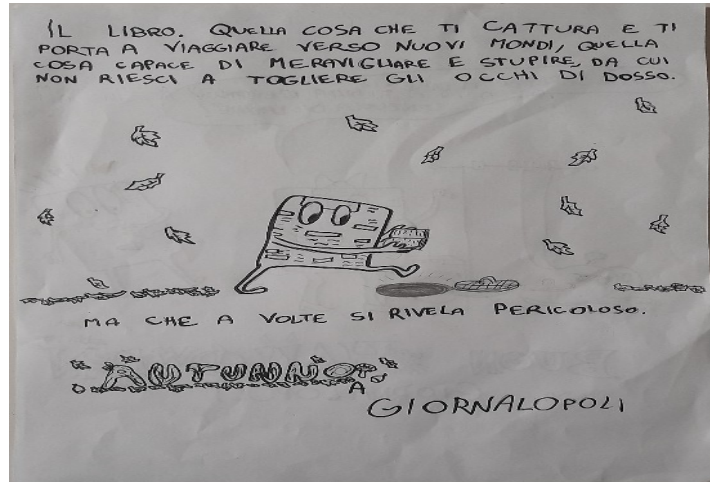 IL LIBRO. QUELLA COSA CHE TI CATTURA E TI
PORTA A VIAGGIARE VERSO NUOVI MONDI, QUELLA
COSA CAPACE DI MERAVIGLIARE E STUPIRE, DA CUI
NON RIESCI A TOGLIERE GLI OCCHI DI DOSSO.
MA CHE A VOLTE SI RIVELA PERICOLOSO.
AUTUNNO
A
GIORNALOPOLI